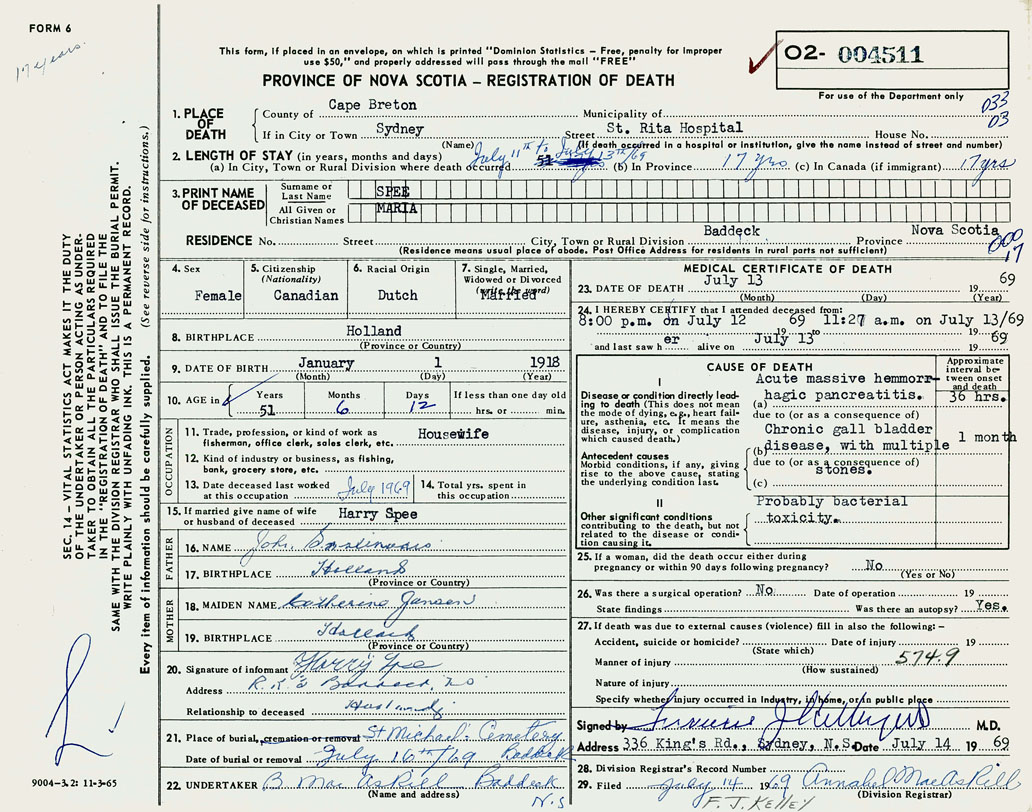 FORM 6
17 years.
This form, if placed in an envelope, on which is printed "Dominion Statistics – Free, penalty for improper
use $50," and properly addressed will pass through the mail "FREE"
PROVINCE OF NOVA SCOTIA – REGISTRATION OF DEATH
O2- 004511
For use of the Department only
033
03
1. PLACE OF DEATH
County of Cape Breton Municipality of
If in City or Town Sydney Street St. Rita Hospital House No.
(Name) (If death occurred in a hospital or institution, give the name instead of street and number)
2. LENGTH OF STAY (in years, months and days) July 11th to July 13th/69
(a) In City, Town or Rural Division where death occurred 51 (b) In Province 17 yrs. (c) In Canada (if immigrant) 17 yrs
3. PRINT NAME OF DECEASED
Surname or Last Name SPEE
All Given or Christian Names MARIA
RESIDENCE No. Street City, Town or Rural Division Baddeck Province Nova Scotia
(Residence means usual place of abode. Post Office Address for residents in rural parts not sufficient)
000
17
4. Sex Female
5. Citizenship (Nationality) Canadian
6. Racial Origin Dutch
7. Single, Married, Widowed or Divorced (write the word) Married
8. BIRTHPLACE Holland
(Province or Country)
9. DATE OF BIRTH January 1 1918
(Month) (Day) (Year)
10. AGE in Years 51 Months 6 Days 12 If less than one day old hrs. or min.
OCCUPATION
11. Trade, profession, or kind of work as fisherman, office clerk, sales clerk, etc. Housewife
12. Kind of industry or business, as fishing, bank, grocery store, etc.
13. Date deceased last worked at this occupation July 1969
14. Total yrs. spent in this occupation
15. If married give name of wife or husband of deceased Harry Spee
FATHER
16. NAME Joh.
17. BIRTHPLACE Holland
(Province or Country)
MOTHER
18. MAIDEN NAME Catherine Jansen
19. BIRTHPLACE Holland
(Province or Country)
20. Signature of informant Harry Spee
Address R.R. 3 Baddeck, N.S
Relationship to deceased Husband
21. Place of burial, cremation or removal St Michael's Cemetery
Date of burial or removal July 16th/69 Baddeck
22. UNDERTAKER B MacAskill Baddeck
(Name and address) N.S
MEDICAL CERTIFICATE OF DEATH
23. DATE OF DEATH July 13 19 69
(Month) (Day) (Year)
24. I HEREBY CERTIFY that I attended deceased from:
8:00 p.m. on July 12 19 69 to 11:27 a.m. on July 13/69
and last saw h er alive on July 13 19 69
CAUSE OF DEATH
Approximate interval between onset and death
I
Disease or condition directly leading to death (This does not mean the mode of dying, e.g., heart failure, asthenia, etc. It means the disease, injury, or complication which caused death.)
(a) Acute massive hemmorr-
hagic pancreatitis. 36 hrs.
due to (or as a consequence of)
Antecedent causes
Morbid conditions, if any, giving rise to the above cause, stating the underlying condition last.
(b) Chronic gall bladder
disease, with multiple 1 month
due to (or as a consequence of)
stones.
(c)
II
Other significant conditions contributing to the death, but not related to the disease or condition causing it.
Probably bacterial
toxicity.
25. If a woman, did the death occur either during pregnancy or within 90 days following pregnancy? No
(Yes or No)
26. Was there a surgical operation? No. Date of operation 19
State findings Was there an autopsy? Yes.
27. If death was due to external causes (violence) fill in also the following: –
Accident, suicide or homicide? Date of injury 19
(State which)
Manner of injury 574.9
(How sustained)
Nature of injury
Specify whether injury occurred in Industry, in home, or in public place
Signed by M.D.
Address 336 King's Rd., Sydney, N.S. Date July 14 19 69
28. Division Registrar's Record Number
29. Filed July 14 1969 Annabel MacAskill
(Division Registrar)
F. J. KELLEY
SEC. 14 – VITAL STATISTICS ACT MAKES IT THE DUTY
OF THE UNDERTAKER OR PERSON ACTING AS UNDER-
TAKER TO OBTAIN ALL THE PARTICULARS REQUIRED
IN THE "REGISTRATION OF DEATH" AND TO FILE THE
SAME WITH THE DIVISION REGISTRAR WHO SHALL ISSUE THE BURIAL PERMIT.
WRITE PLAINLY WITH UNFADING INK. THIS IS A PERMANENT RECORD.
Every item of information should be carefully supplied. (See reverse side for instructions.)
9004-3.2: 11-3-65